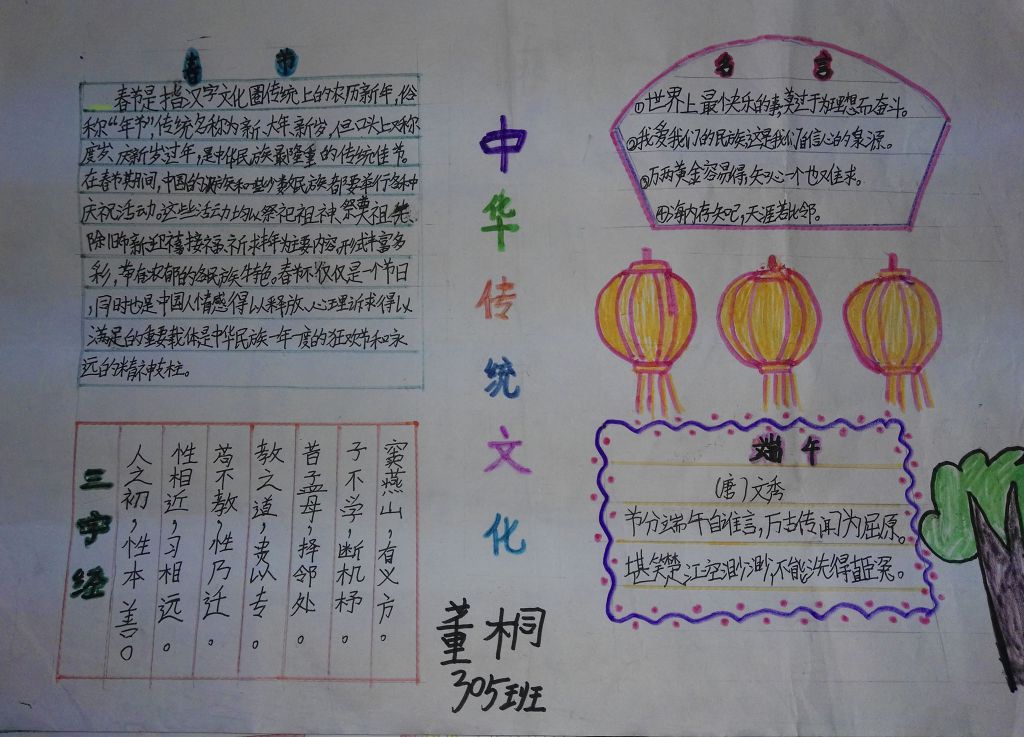 春 节
春节是指汉字文化圈传统上的农历新年,俗
称“年节”,传统名称为新、大年、新岁,但口头上又称
度岁、庆新岁过年,是中华民族最隆重的传统佳节。
在春节期间,中国的汉族和些少数民族都要举行各种
庆祝活动。这些活动均以祭祀祖神、祭奠祖先、
除旧布新迎禧接福、祈求丰年为主要内容,形式丰富多
彩,带有浓郁的各民族特色。春节不仅仅是一个节日
,同时也是中国人情感得以释放、心理诉求得以
满足的重要载体,是中华民族一年一度的狂欢节和永
远的精神支柱。
三字经
人之初,性本善。
性相近,习相远。
苟不教,性乃迁。
教之道,贵以专。
昔孟母,择邻处。
子不学,断机杼。
窦燕山,有义方。
中华传统文化
董桐
305班
名 言
①世界上最快乐的事,莫过于为理想而奋斗。
②我爱我们的民族,这是我们自信心的泉源。
③万两黄金容易得,知心一个也难求。
④海内存知己,天涯若比邻。
端 午
(唐)文秀
节分端午自谁言,万古传闻为屈原。
堪笑楚江空渺渺,不能洗得直臣冤。